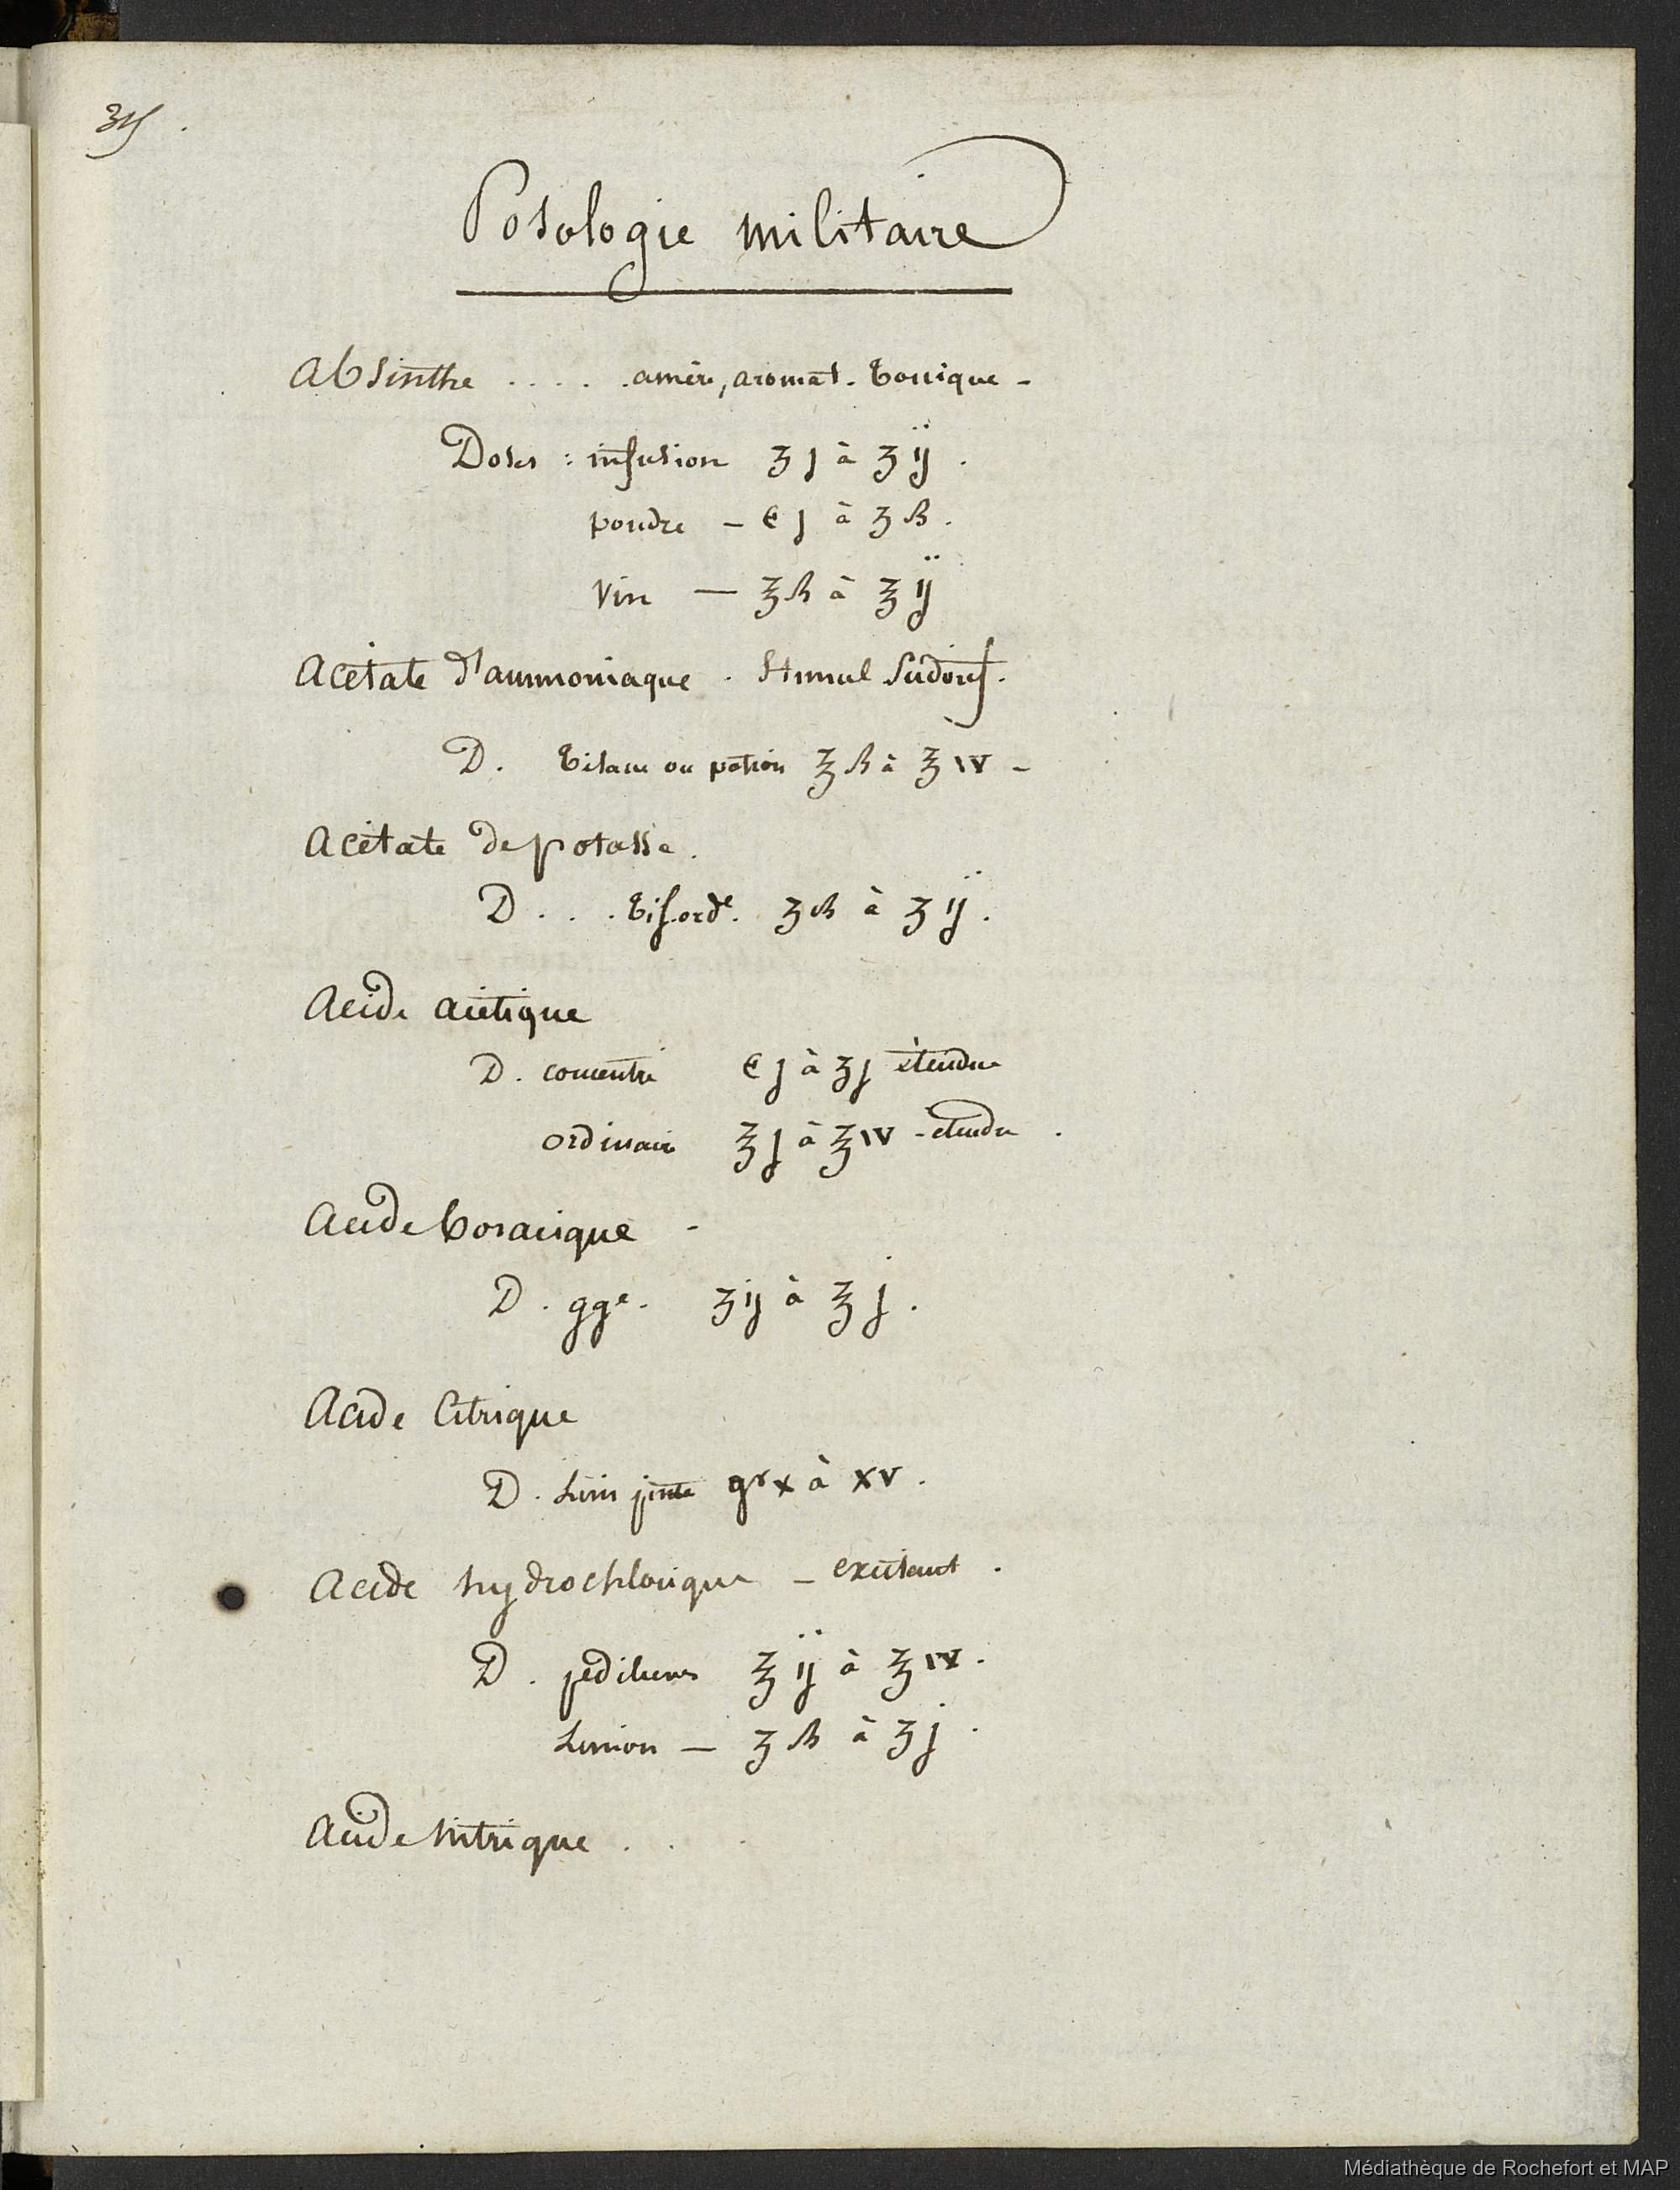 35.
Posologie militaire
Absinthe . . . . . amère, aromat. tonique -
Doses : infusion ʒ j à ʒ ij .
poudre - ℈ j à ʒ ß .
Vin — ℥ ß à ℥ ij
Acétate d'ammoniaque . Stimul Sudorif.
D . tisane ou potion ℥ ß à ℥ iv -
Acétate de potasse .
D . . . tis. ord.e ʒ ß à ʒ ij .
Acide acétique
D . concentré ℈ j à ʒ j étendu
ordinaire ℥ j à ℥ iv - étendu .
Acide boracique -
D . gge . ʒ ij à ℥ j .
Acide Citrique
D . Lim pinte gr x à xv .
Acide hydrochlorique - excitant .
D . pediluves ℥ ij à ℥ iv .
Limon — ʒ ß à ʒ j .
Acide Nitrique . .
Médiathèque de Rochefort et MAP